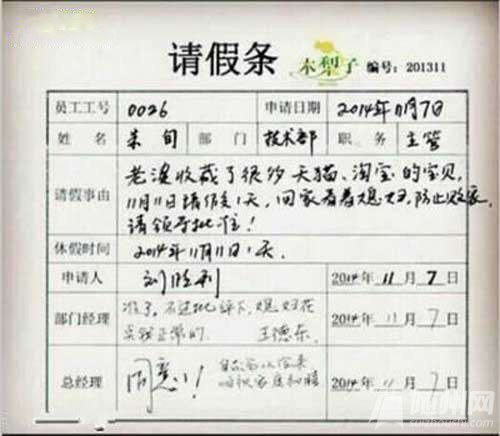 请假条 木犁子 编号: 201311
员工工号 0026 申请日期 2014年11月7日
姓名 朱旬 部门 技术部 职务 主管
老婆收藏了很多天猫、淘宝的宝贝,
请假事由 11月11日请假1天,回家看着媳妇,防止败家,
请领导批准!
休假时间 2014年11月11日1天.
申请人 刘胜利 2014年11月7日
准了,不过批评下,媳妇花
部门经理 2014年11月7日
实属正常的. 王德东
总经理 同意! 2014年11月7日
随州网